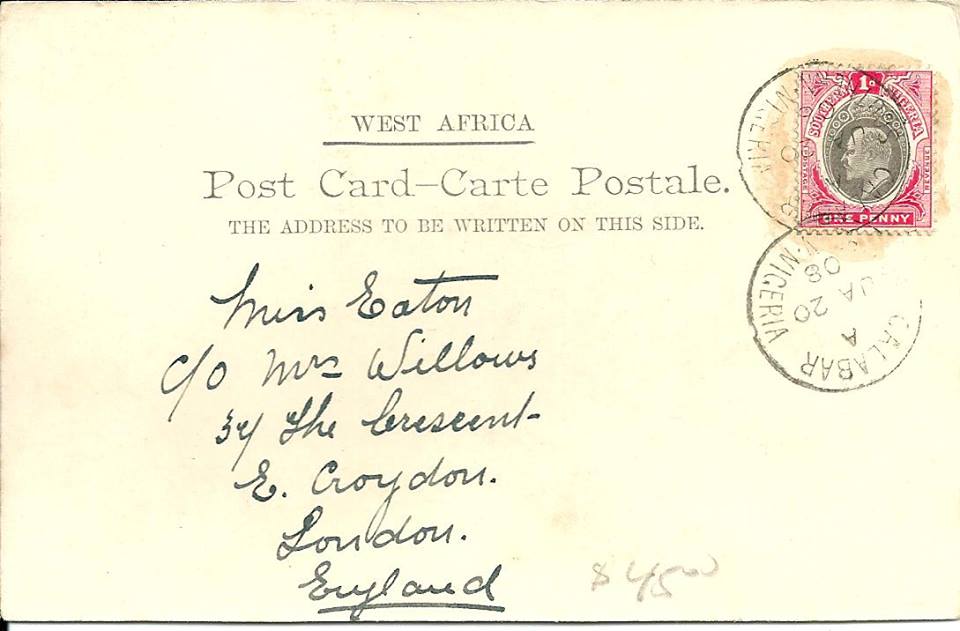 WEST AFRICA
Post Card—Carte Postale.
THE ADDRESS TO BE WRITTEN ON THIS SIDE.
SOUTHERN NIGERIA
1d
POSTAGE
REVENUE
ONE PENNY
NIGERIA
CALABAR
A
JA 20
08
NIGERIA
Miss Eaton
c/o Mrs Willows
37 The Crescent
E. Croydon.
London.
England
$4500